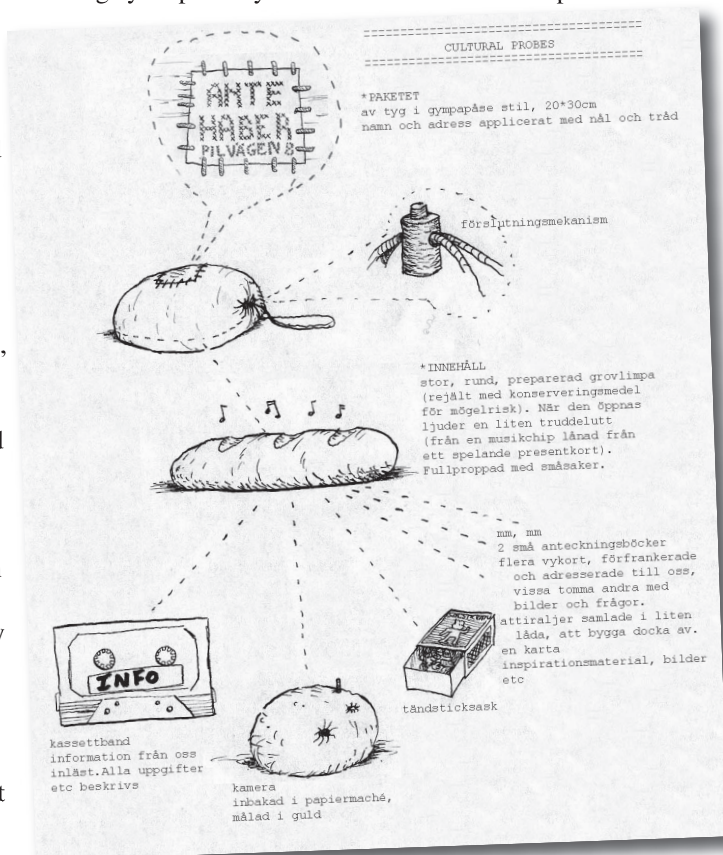 CULTURAL PROBES
*PAKETET
av tyg i gympapåse stil, 20*30cm
namn och adress applicerat med nål och tråd
ANTE
HABER
PILVÄGEN 8
förslutningsmekanism
*INNEHÅLL
stor, rund, preparerad grovlimpa
(rejält med konserveringsmedel
för mögelrisk). När den öppnas
ljuder en liten truddelutt
(från en musikchip lånad från
ett spelande presentkort).
Fullproppad med småsaker.
mm, mm
2 små anteckningsböcker
flera vykort, förfrankerade
och adresserade till oss,
vissa tomma andra med
bilder och frågor.
attiraljer samlade i liten
låda, att bygga docka av.
en karta
inspirationsmaterial, bilder
etc
tändsticksask
INFO
kassettband
information från oss
inläst.Alla uppgifter
etc beskrivs
kamera
inbakad i papiermaché,
målad i guld